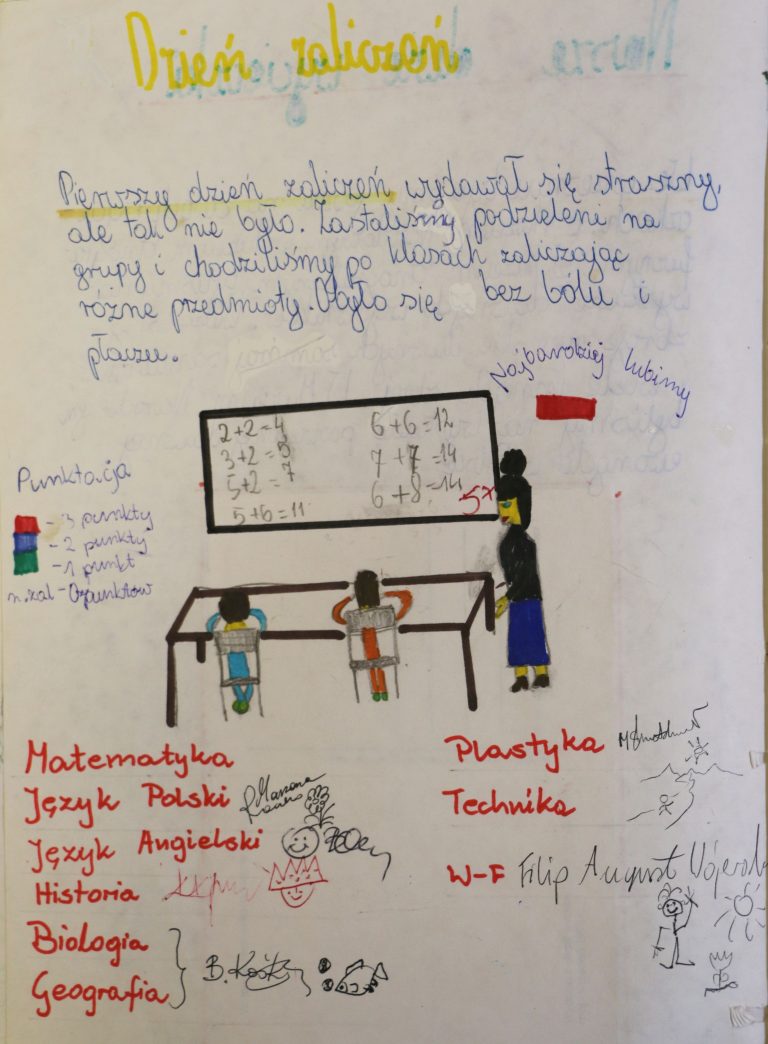 Dzień zaliczeń
Pierwszy dzień zaliczeń wydawał się straszny,
ale tak nie było. Zastaliśmy podzieleni na
grupy i chodziliśmy po klasach zaliczając
różne przedmioty. Obyło się bez bólu i
płaczu.
Najbardziej lubimy
2+2=4
3+2=5
5+2=7
5+6=11
6+6=12
7+7=14
6+8=14
5+
Punktacja
- 3 punkty
- 2 punkty
- 1 punkt
n.zal - 0 punktów
Matematyka
Język Polski
Język Angielski
Historia
Biologia
Geografia
Plastyka
Technika
W-F Filip August